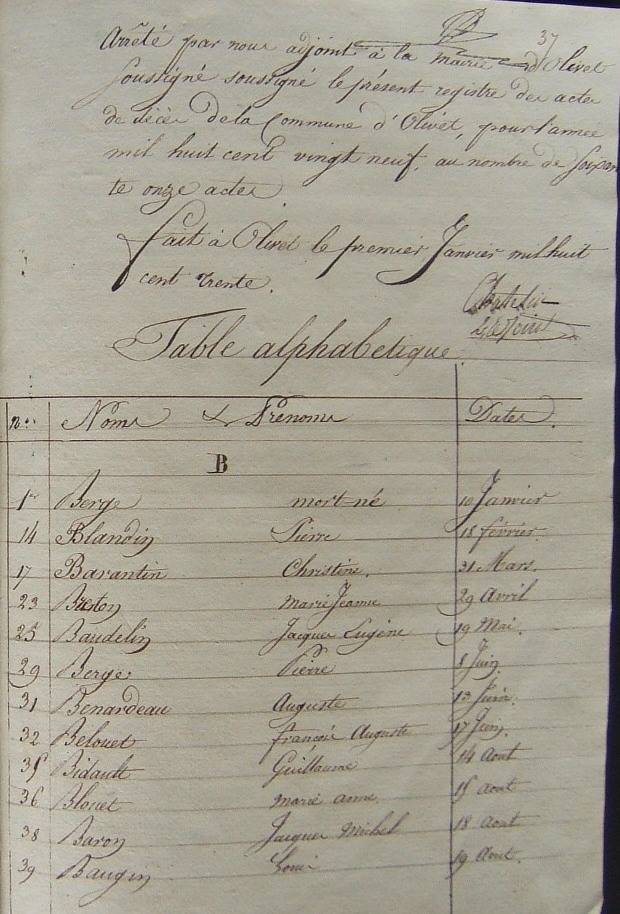 37
Arrêté par nous adjoint à la mairie d'Olivet
soussigné soussigné le présent registre des actes
de décès de la Commune d'Olivet, pour l'année
mil huit cent vingt neuf, au nombre de soixan
te onze actes.
fait à Olivet le premier Janvier mil huit
cent trente.
L'adjoint
Table alphabetique.
nos Noms & Prénoms Dates.
B
1er Berge mort né 10 Janvier
14 Blandin Pierre 18 février.
17 Barantin Christine. 31 Mars.
23 Breton Marie Jeanne 29 Avril
25 Baudelin Jacques Eugène 19 Mai.
29 Berge Pierre 8 Juin
31 Benardeau Auguste 13 Juin.
32 Belouet françois Auguste 17 Juin.
35 Bidault Guillaume 14 Aout
36 Blouet marie anne. 15 Aout
38 Baron Jacques Michel 18 Aout
39 Baugin Louis 19 Aout.